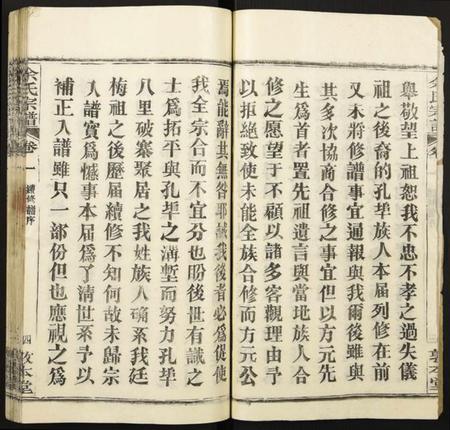 擧敬望上祖恕我不忠不孝之過失儀
祖之後裔的孔垏族人本届列修在前
又未將修譜事宜通報與我爾後雖與
其多次協商合修之事宜但以方元先
生為首者置先祖遺言與當地族人合
修之愿望于不顧以諸多客觀理由予
以拒絕致使未能全族合修而方元公
焉能辭其無咎耶誠我後者必爲從使
我全宗合而不宜分也盼後世有識之
士爲拓平與孔垏之溝塹而努力孔垏
八里破寨聚居之我姓族人確系我廷
梅祖之後歷届續修不知何故未歸宗
入譜實爲憾事本届爲了清世系予以
補正入譜雖只一部份但也應視之爲
余氏宗譜
卷一
續修譜序
四
敦本堂
敦本堂